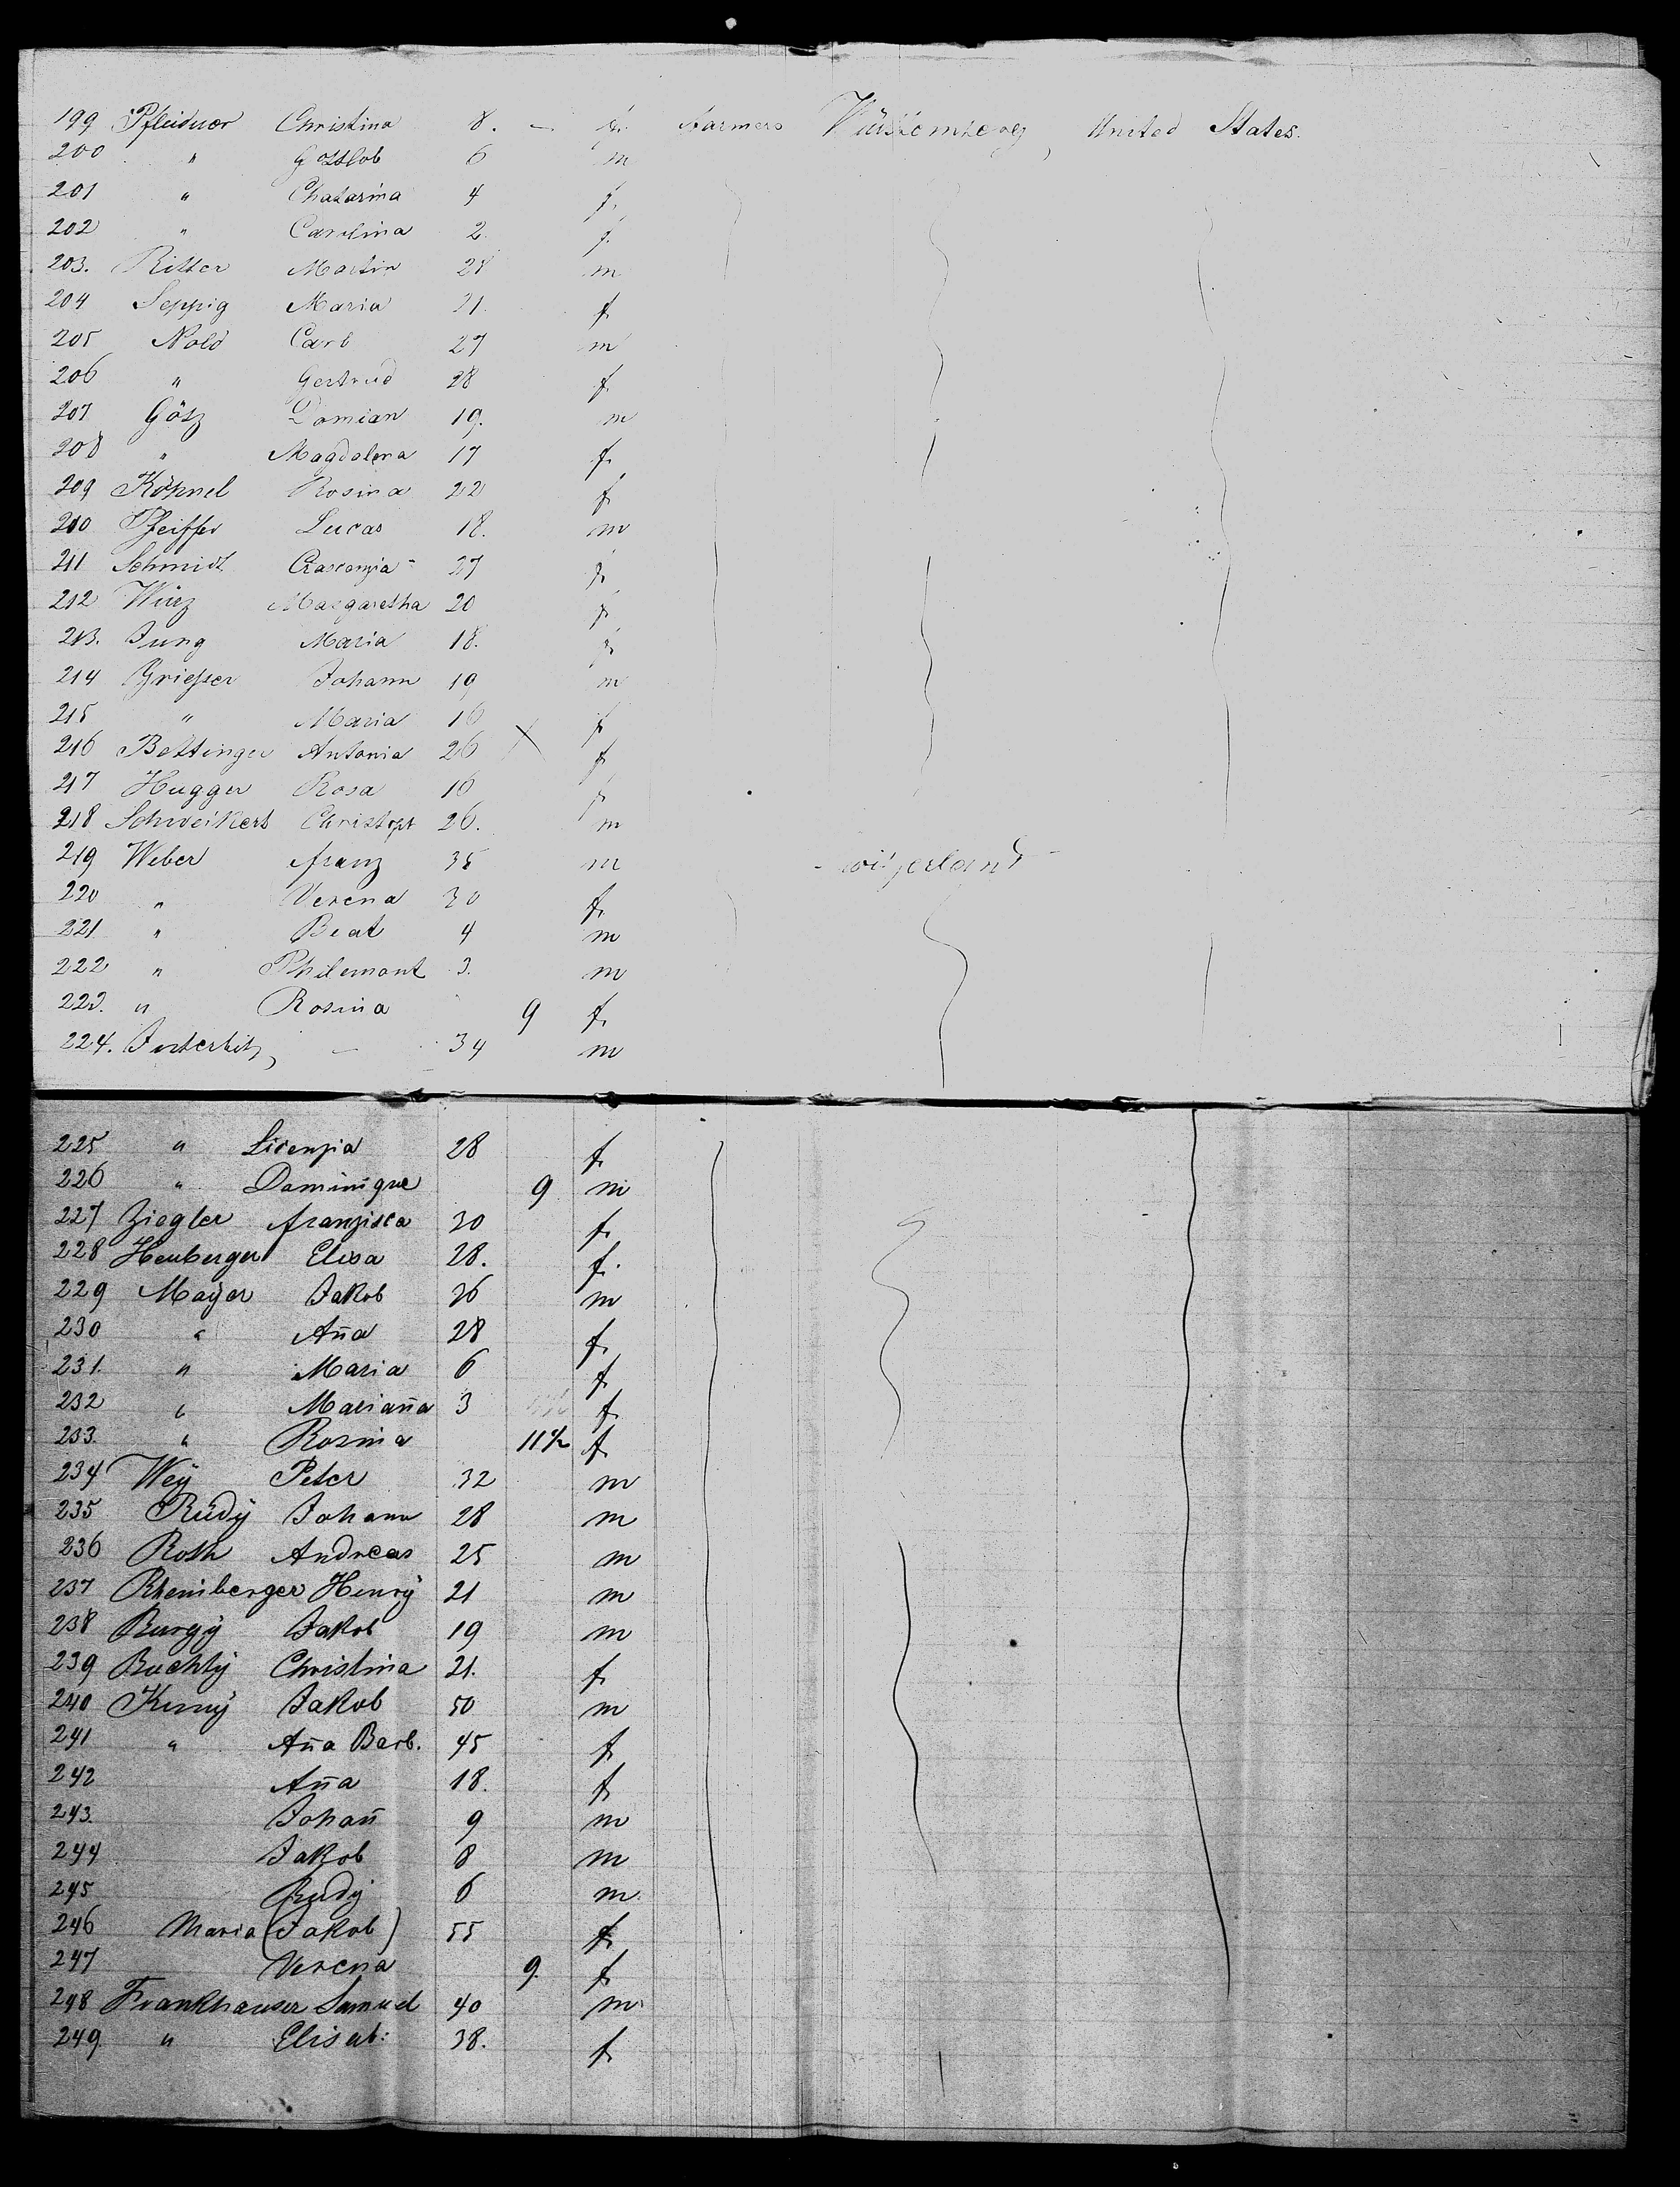 199 Pfleiderer Christina 8. — f. Farmers Württemberg, United States.
200 " Gottlob 6 m
201 " Chatarina 4 f.
202 " Carolina 2. f.
203. Ritter Martin 28 m
204 Seppig Maria 21. f.
205 Nold Carl 27 m
206 " Gertrud 28 f.
207 Götz Damian 19. m
208 " Magdalena 17 f.
209 Köhnel Rosina 22 f
210 Pfeiffer Lucas 18. m
211 Schmidt 27 f.
212 Wirz Margaretha 20 f.
213. Jung Maria 18. f.
214 Grießer Johann 19 m
215 " Maria 16 f
216 Bettinger Antonia 26 X f
217 Hugger Rosa 16 f
218 Schweikert Christoph 26. m
219 Weber Franz 35 m
220 " Verena 30 f.
221 " Beat 4 m
222 " Philemont 3. m
223. " Rosina 9 f.
224. — 34 m
225 " 28 f.
226 " Dominique 9 m
227 Ziegler Franzisca 30 f.
228 Heuberger Elisa 28. f.
229 Mayer Jakob 36 m
230 " Ana 28 f.
231. " Maria 6 f
232 " Mariana 3 f.
233. " Rosina 11½ f.
234 Wey Peter 32 m
235 Rudy Johann 28 m
236 Roth Andreas 25 m
237 Rheinberger Henry 21 m
238 Burgy Jakob 19 m
239 Buchty Christina 21. f
240 Kuny Jakob 50 m
241 " Ana Barb. 45 f.
242 Ana 18. f
243. Johan 9 m
244 Jakob 8 m
245 Rudy 6 m.
246 Maria (Jakob) 55 f.
247 Verena 9. f
248 Frankhauser Samuel 40 m
249. " Elisab: 38. f.